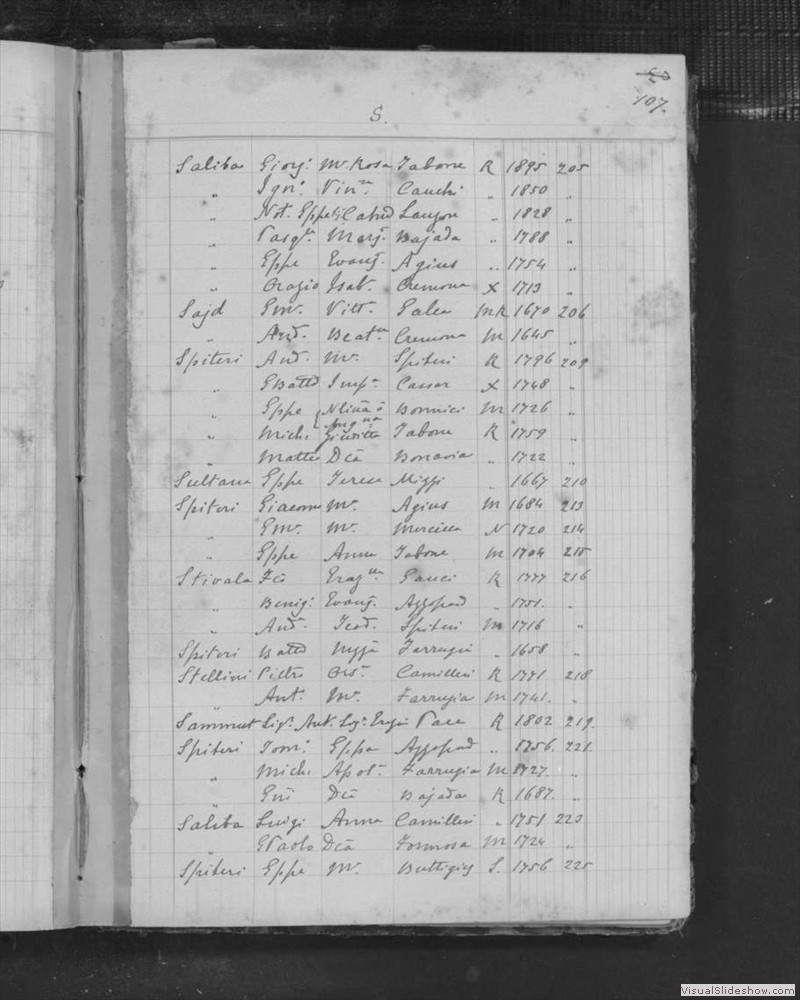 107.
S.
Saliba Giorg: Mᵃ. Rosa Tabone R 1895 205
" Ign: Vinᵃ Cauchi " 1850 "
" Not. Eppe Lauzon " 1828 "
" Pasqˡᵉ Marg. Bajada " 1788 "
" Eppe Evang. Agius " 1754 "
" Orazio Isab. Cremona X 1713 "
Sajd Gm. Vitt. Galea MR 1670 206
" And. Beatᵃ Cremona M 1645 "
Spiteri And. Mᵃ. Spiteri R 1796 209
" GBattᵃ Impᵃ Cassar X 1748 "
" Eppe Bonnici M 1726 "
" Mich: Giuditta Tabone R 1759 "
" Matteo Dca Bonavia " 1722 "
Sultana Eppe Teresa Mizzi " 1667 210
Spiteri Giacomo Mᵃ. Agius M 1684 213
" Gm. Mᵃ. Mercieca N 1720 214
" Eppe Anna Tabone M 1704 215
Stivala Fco Grazˡˡᵃ Gauci R 1777 216
" Benig: Evang. Azzopard " 1751. "
" And. Teod. Spiteri M 1716 "
Spiteri Battᵃ Farrugia " 1658 "
Stellini Pietro Orsᵃ Camilleri R 1771 218
" Ant. Mᵃ. Farrugia M 1741. "
Sammut Sigʳ. Ant. Sigʳᵃ Pace R 1802 219.
Spiteri Tom: Eppa Azzopard " 1756. 221.
" Mich: Apolᵃ Farrugia M 1727. "
" Gni Dca Bajada R 1687. "
Saliba Luigi Anna Camilleri " 1751 223
" GPaolo Dca Formosa M 1724 "
Spiteri Eppe Mᵃ. Buttigieg S. 1756 225
VisualSlideshow.com